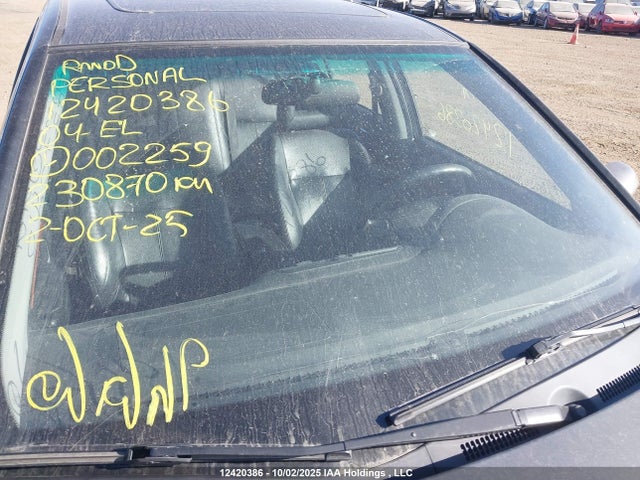 RANDD
PERSONAL
12420386
04 EL
002259
230870 km
2-OCT-25
12420386
12420386 - 10/02/2025 IAA Holdings , LLC